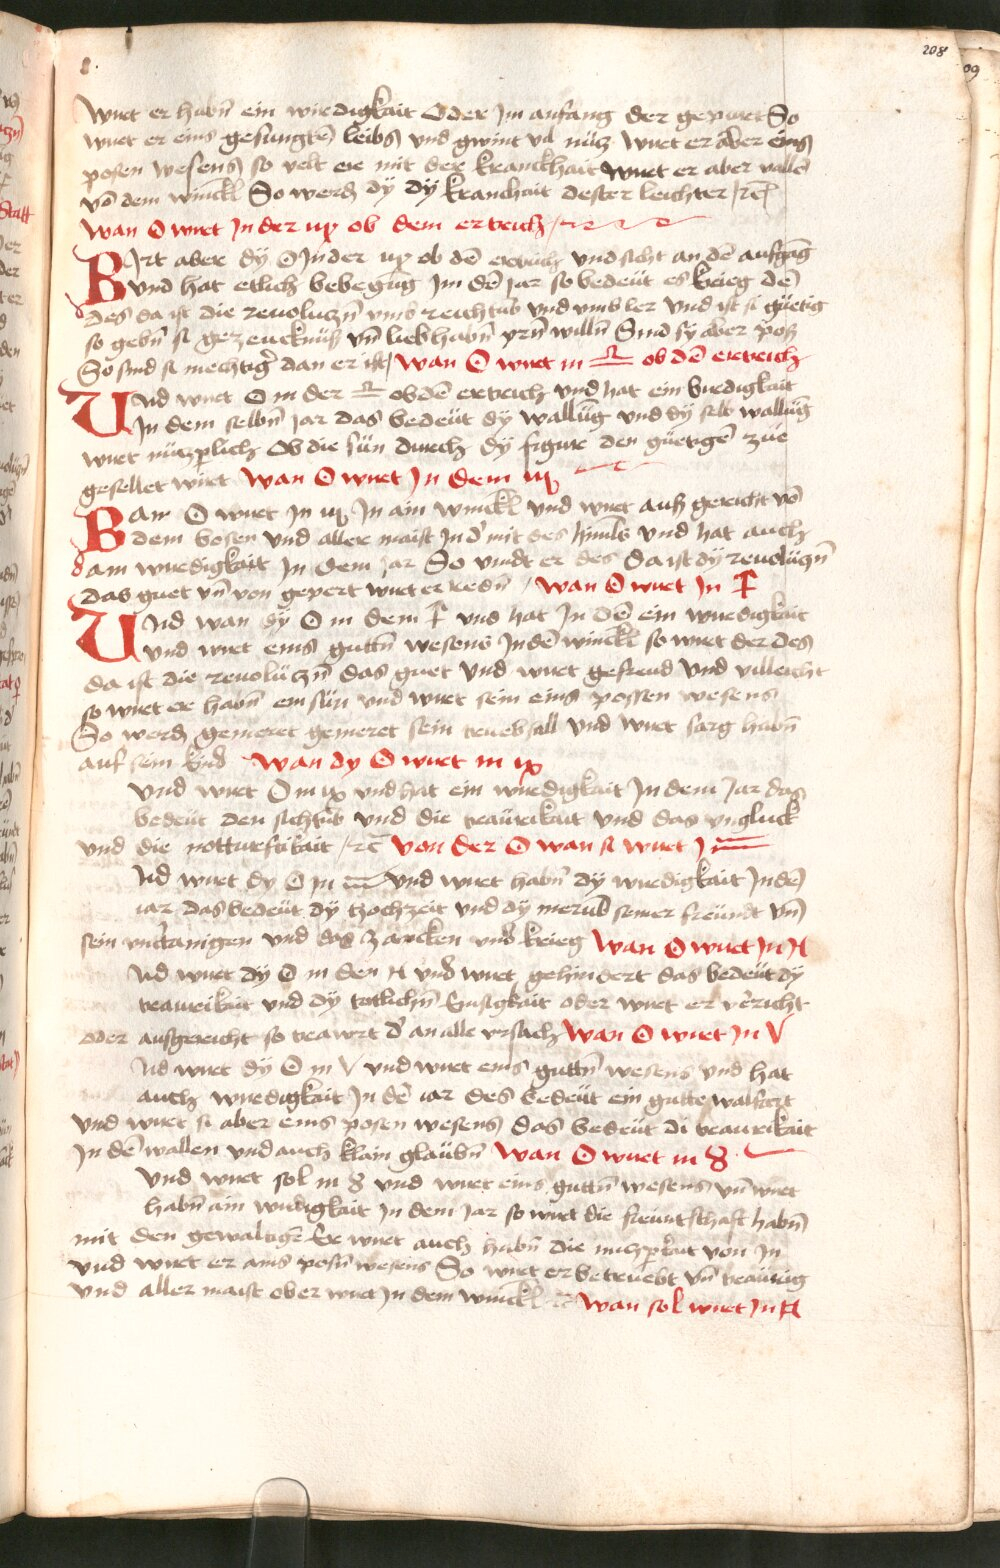 208
wirt er habñ ein wirdigkait Oder Jm anfang der gepurt So
wirt er eins gesungtē leibs und gwint vil nütz wirt er aber eins
posen wesens so velt ere mit der kranckhait wirt er aber vallē
vō dem winckl So werdñ dÿ dÿ kranchait dester leichter / rc
wan ☉ wirt Jn der ♍ ob dem ertrich / rc
Wirt aber dÿ ☉ Jn der ♍ ob dē ertrich und sicht an dē aufgāg
und hat etlich bebegūg Jm dē Jar so bedeüt es krieg dē
des da ist die revolutzñ umb reichtub und umb ler Und ist si güetig
so gebñ si gezeucknüß uñ liebhabñ yrñ willñ Sind sy aber poß
So sind si mechtigr dan er ist / wan ☉ wirt in ♎ ob dē ertreich
Und wirt ☉ in der ♎ ob dē ertreich und hat ein wirdigkait
Jn dem selbñ Jar das bedeüt dÿ wallūg und dÿ selt wallūg
wirt nützperlich Ob die sün durch dÿ figur den güetigē zue
gesellet wirt wan ☉ wirt Jn dem ♏
Wan ☉ wirt Jn ♏ Jn ain winckl und wirt auß gericht vō
dem bosen und aller maist Jn d' mit des himls Und hat auch
ain wirdigkait Jn dem Jar So vindt er des da ist dÿ revolutzñ
das guet uñ von gepert wirt er redñ / wan ☉ wirt Jn ♐
Und wan dÿ ☉ in dem ♐ und hat Jn dē ein wirdigkait
und wirt eins guttñ wesens Jn dē winckl so wirt der des
da ist die revolutzñ das guet und wirt gefreud und villeicht
so wirt er habñ ein sün und wirt sein eins possen wesens
So werdñ gemeret gemeret sein truebsall und wirt sarg habñ
auf sein kind wan dy ☉ wirt in ♑
Und wirt ☉ in ♑ und hat ein wirdigkait Jn dem Jar das
bedeüt den sichtūb und die traurikait und das ungluck
und die notturftikait / rc von der ☉ wan si wirt J ♒
Nd wirt dy ☉ in ♒ und wirt habñ dÿ wirdigkait Jn dē
iar das bedeüt dÿ hochzeit und dÿ merūb seiner freündt uñ
sein undtanigen und des zancken und krieg wan ☉ wirt Jn ♓
Nd wirt dÿ ☉ in den ♓ und wirt gehindert das bedeüt dÿ
traurikait und dÿ tötlichñ Emsigkait oder wirt er vericht
oder ausgericht so trawrt d' an alle ursach wan ☉ wirt Jn ♈
Nd wirt dÿ ☉ in ♈ und wirt eins guttñ wesens und hat
auch wirdigkait Jn dē iar des bedeüt ein gutte walfart
und wirt si aber eins posen wesens das bedeüt di traurikait
Jn dē wallen und auch klain glaubñ wan ☉ wirt in ♉
Und wirt sol in ♉ und wirt eins guttñ wesens uñ wirt
habñ ain wirdigkait Jn dem Jar so wirt die freuntschaft habñ
mit den gewaltigē Er wirt auch habñ die nutzperkait von Jn
und wirt er ains posñ wesens So wirt er betruebt uñ traurig
und aller maist ober wirt Jn dem winckl rc wan sol wirt Jn ♊